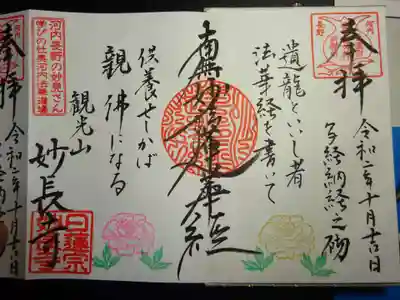 奉拝
令和二年十月吉日
写経納経之砌
遺龍といし者
法華経を書いて
南無妙法蓮華経
供養せしかば
親佛になる
観光山
妙長寺
日蓮宗
河内長野の妙見さん
奉拝
令和二年十月吉日